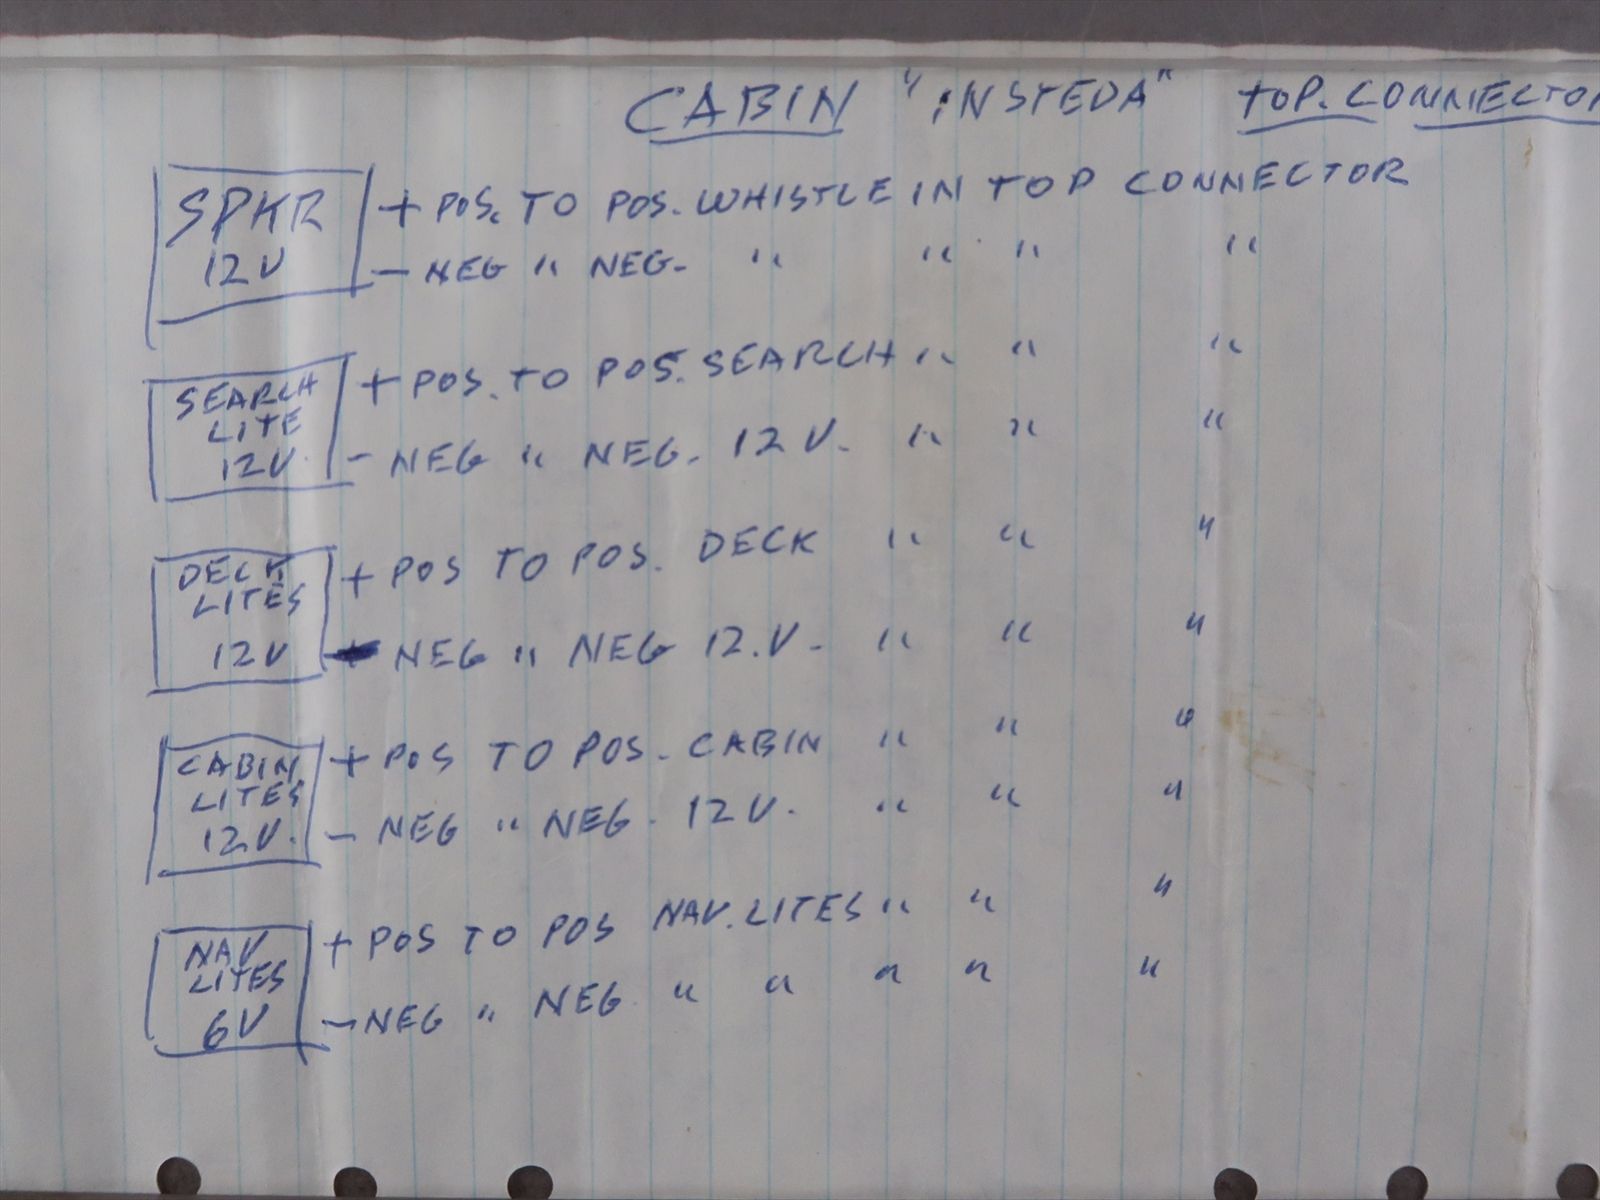 CABIN "INSTEDA" TOP. CONNECTOR
SPKR
12V
+ POS. TO POS. WHISTLE IN TOP CONNECTOR
- NEG " NEG- " " " "
SEARCH
LITE
12V.
+ POS. TO POS. SEARCH " " "
- NEG " NEG. 12V. " " "
DECK
LITES
12V
+ POS TO POS. DECK " " "
NEG " NEG 12.V- " " "
CABIN
LITES
12V.
+ POS TO POS. CABIN " " "
- NEG " NEG. 12V. " " "
NAV
LITES
6V
+ POS TO POS NAV. LITES " " "
- NEG " NEG " " " " "